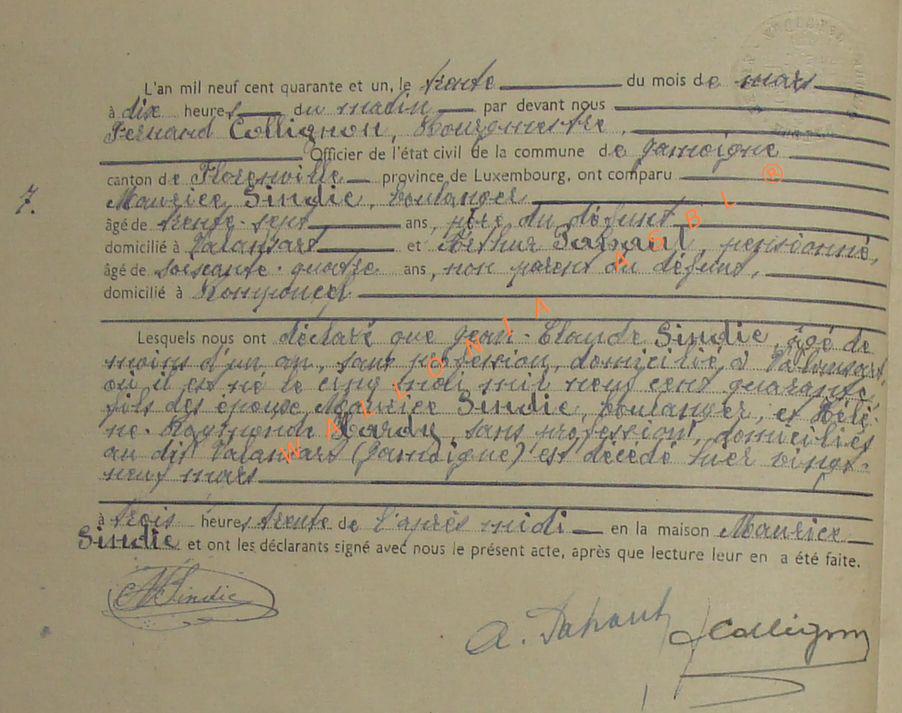 L'an mil neuf cent quarante et un, le trente du mois de mars
à dix heures du matin par devant nous
Fernand Collignon, Bourgmestre,
Officier de l'état civil de la commune de Jamoigne
canton de Florenville province de Luxembourg, ont comparu
7.
Maurice Sindic, boulanger
âgé de trente-sept ans, père du défunt
domicilié à Valansart et Arthur, pensionné,
âgé de soixante-quatre ans, non parent du défunt,
domicilié à Romponcel
Lesquels nous ont déclaré que Jean-Claude Sindic, âgé de
moins d'un an, sans profession, domicilié à Valansart
où il est né le cinq mai mil neuf cent quarante,
fils des époux Maurice Sindic, boulanger, et Hélè-
ne-Raymonde Hardy, sans profession, domiciliés
au dit Valansart (Jamoigne) est décédé hier vingt-
neuf mars
à trois heures trente de l'après midi en la maison Maurice
Sindic et ont les déclarants signé avec nous le présent acte, après que lecture leur en a été faite.
MSindic
A.
Collignon
WALLONIA ASBL ®